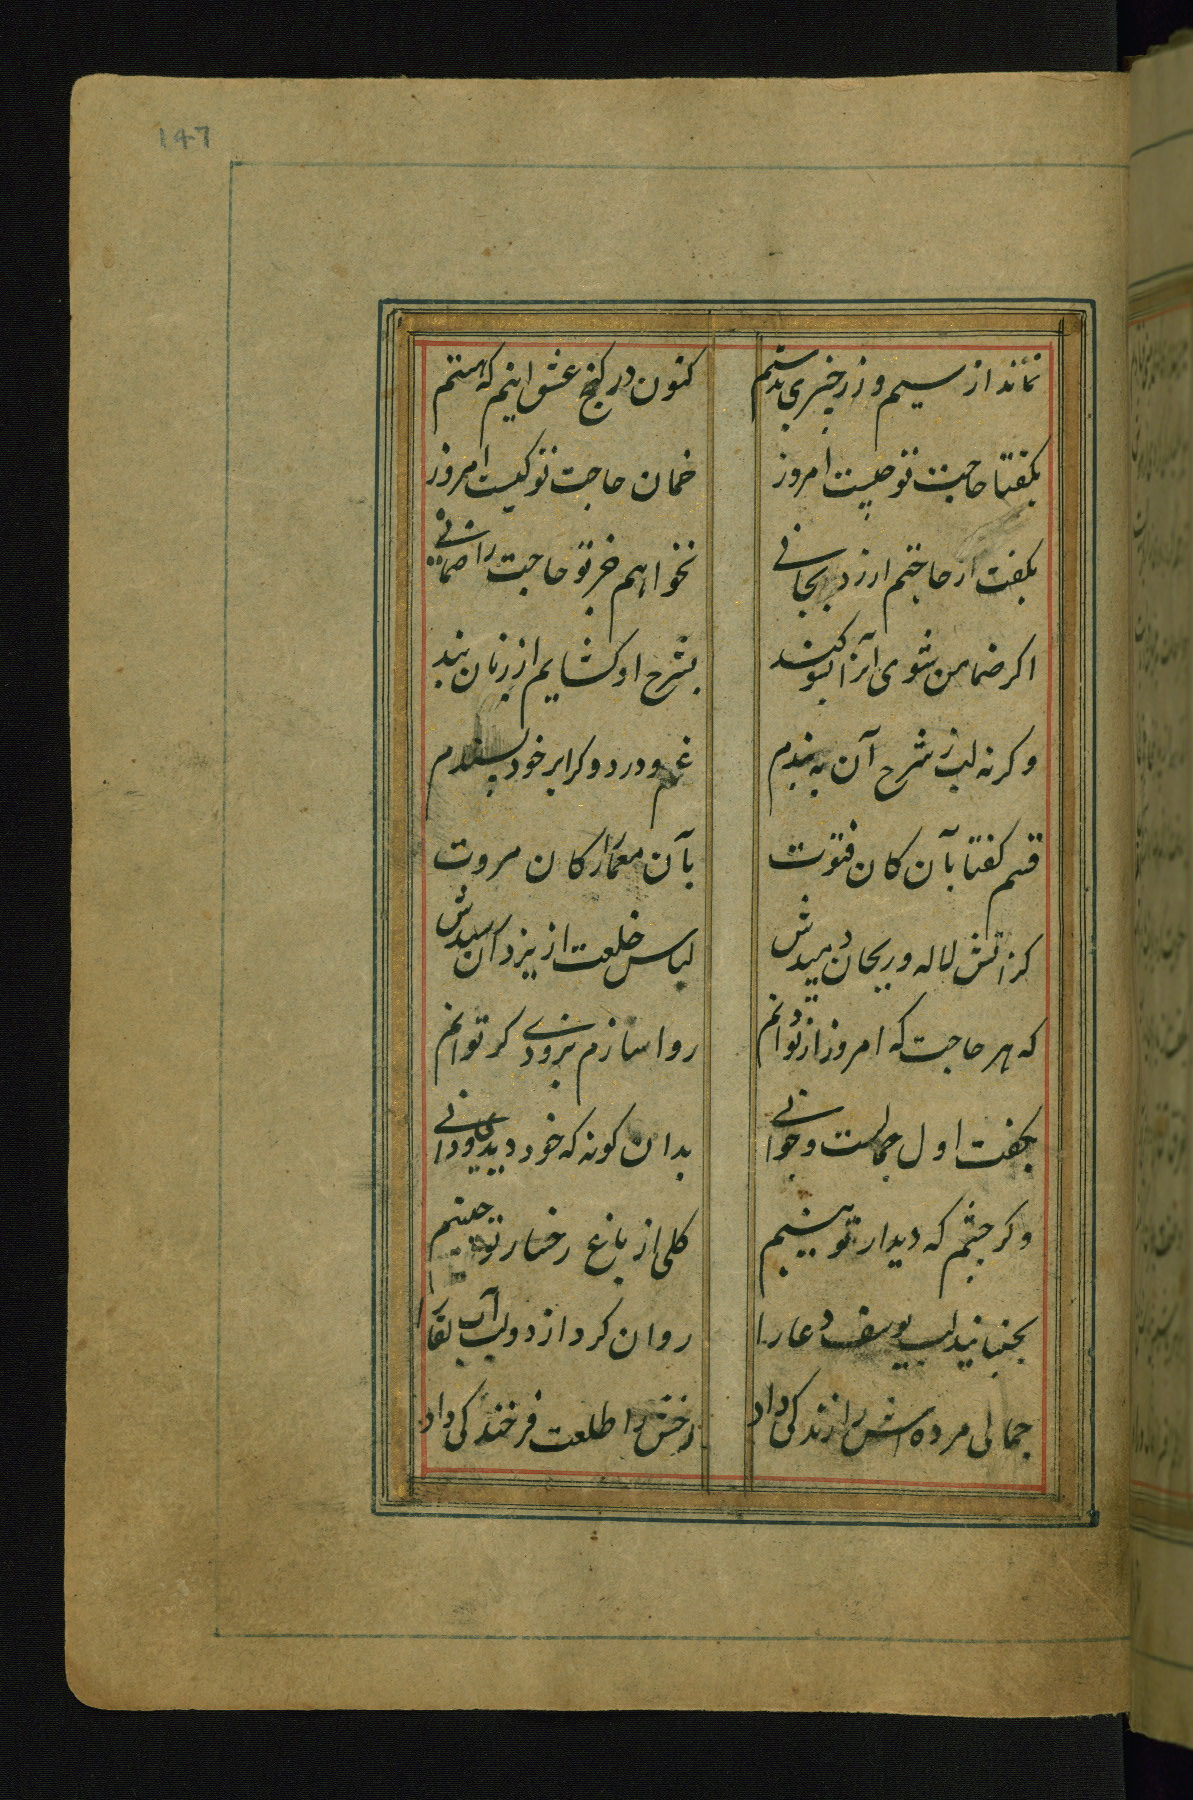 147
نماند از سیم و زر چیزی بدستم کنون در کنج عشق اینم که هستم
بگفتا حاجت تو چیست امروز ضمان حاجت تو کیست امروز
بگفت از حاجتم ارزد بجانی نخواهم جز تو حاجت را ضمانی
اگر ضامن شوی آنرا بسوگند بشرح او گشایم از زبان بند
وگرنه لب ز شرح آن به بندم غم و درد دگر بر خود پسندم
قسم گفتا بآن کان فتوت بآن معمار ارکان مروت
کز آتش لاله و ریحان دمیدش لباس خلعت از یزدان رسیدش
که هر حاجت که امروز از تو دانم روا سازم بزودی گر توانم
بگفت اول جمالست و جوانی بدان گونه که خود دیدی و دانی
وگر چشمم که دیدار تو بینم گلی از باغ رخسار تو چینم
بجنبانید لب یوسف دعا را روان کرد از دو لب آب بقا را
جمالی مرده اش را زندگی داد رخش را طلعت فرخندگی داد